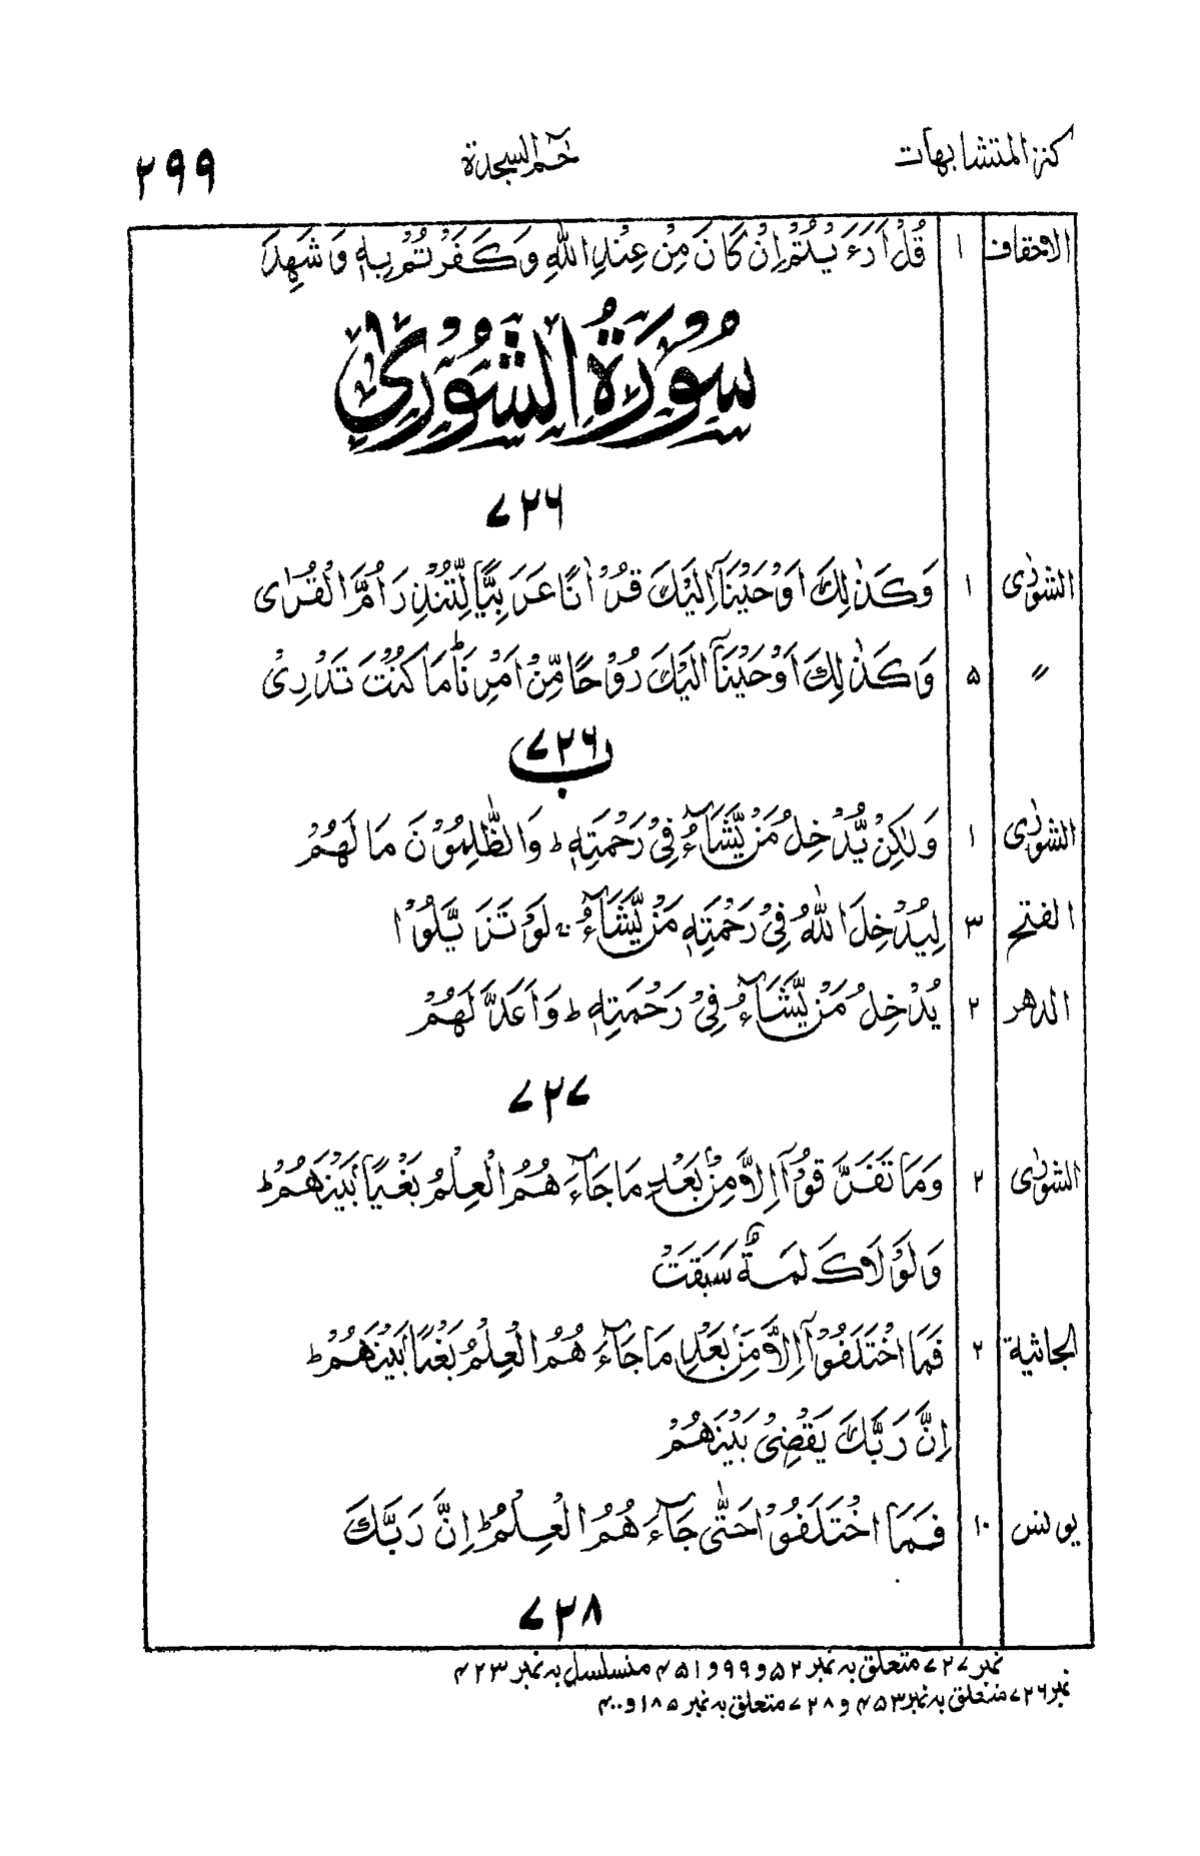 كنز المتشابهات حٰمٓ السجدة ۲۹۹
الاحقاف ۱ قُلْ اَرَءَيْتُمْ اِنْ كَانَ مِنْ عِنْدِ اللّٰهِ وَكَفَرْتُمْ بِهٖ وَشَهِدَ
سُوْرَةُ الشُّوْرٰى
۷۲۶
الشورٰى ۱ وَكَذٰلِكَ اَوْحَيْنَآ اِلَيْكَ قُرْاٰنًا عَرَبِيًّا لِّتُنْذِرَ اُمَّ الْقُرٰى
〃 ۵ وَكَذٰلِكَ اَوْحَيْنَآ اِلَيْكَ رُوْحًا مِّنْ اَمْرِنَا ؕ مَا كُنْتَ تَدْرِىْ
۷۲۶ ب
الشورٰى ۱ وَلٰكِنْ يُّدْخِلُ مَنْ يَّشَآءُ فِىْ رَحْمَتِهٖ ؕ وَالظّٰلِمُوْنَ مَا لَهُمْ
الفتح ۳ لِيُدْخِلَ اللّٰهُ فِىْ رَحْمَتِهٖ مَنْ يَّشَآءُ ۚ لَوْ تَزَيَّلُوْا
الدهر ۲ يُدْخِلُ مَنْ يَّشَآءُ فِىْ رَحْمَتِهٖ ؕ وَاَعَدَّ لَهُمْ
۷۲۷
الشورٰى ۲ وَمَا تَفَرَّقُوْٓا اِلَّا مِنْۢ بَعْدِ مَا جَآءَهُمُ الْعِلْمُ بَغْيًاۢ بَيْنَهُمْ ؕ
وَلَوْ لَا كَلِمَةٌ سَبَقَتْ
الجاثية ۲ فَمَا اخْتَلَفُوْٓا اِلَّا مِنْۢ بَعْدِ مَا جَآءَهُمُ الْعِلْمُ بَغْيًاۢ بَيْنَهُمْ ؕ
اِنَّ رَبَّكَ يَقْضِىْ بَيْنَهُمْ
يونس ۱۰ فَمَا اخْتَلَفُوْا حَتّٰى جَآءَهُمُ الْعِلْمُ ؕ اِنَّ رَبَّكَ
۷۲۸
نمبر ۷۲۷ متعلق به نمبر ۵۲ و ۹۹ و ۴۵۱ منسلسل به نمبر ۴۲۳
نمبر ۷۲۶ متعلق به نمبر ۴۵۳ و ۷۲۸ متعلق به نمبر ۱۸۵ و ۴۰۰